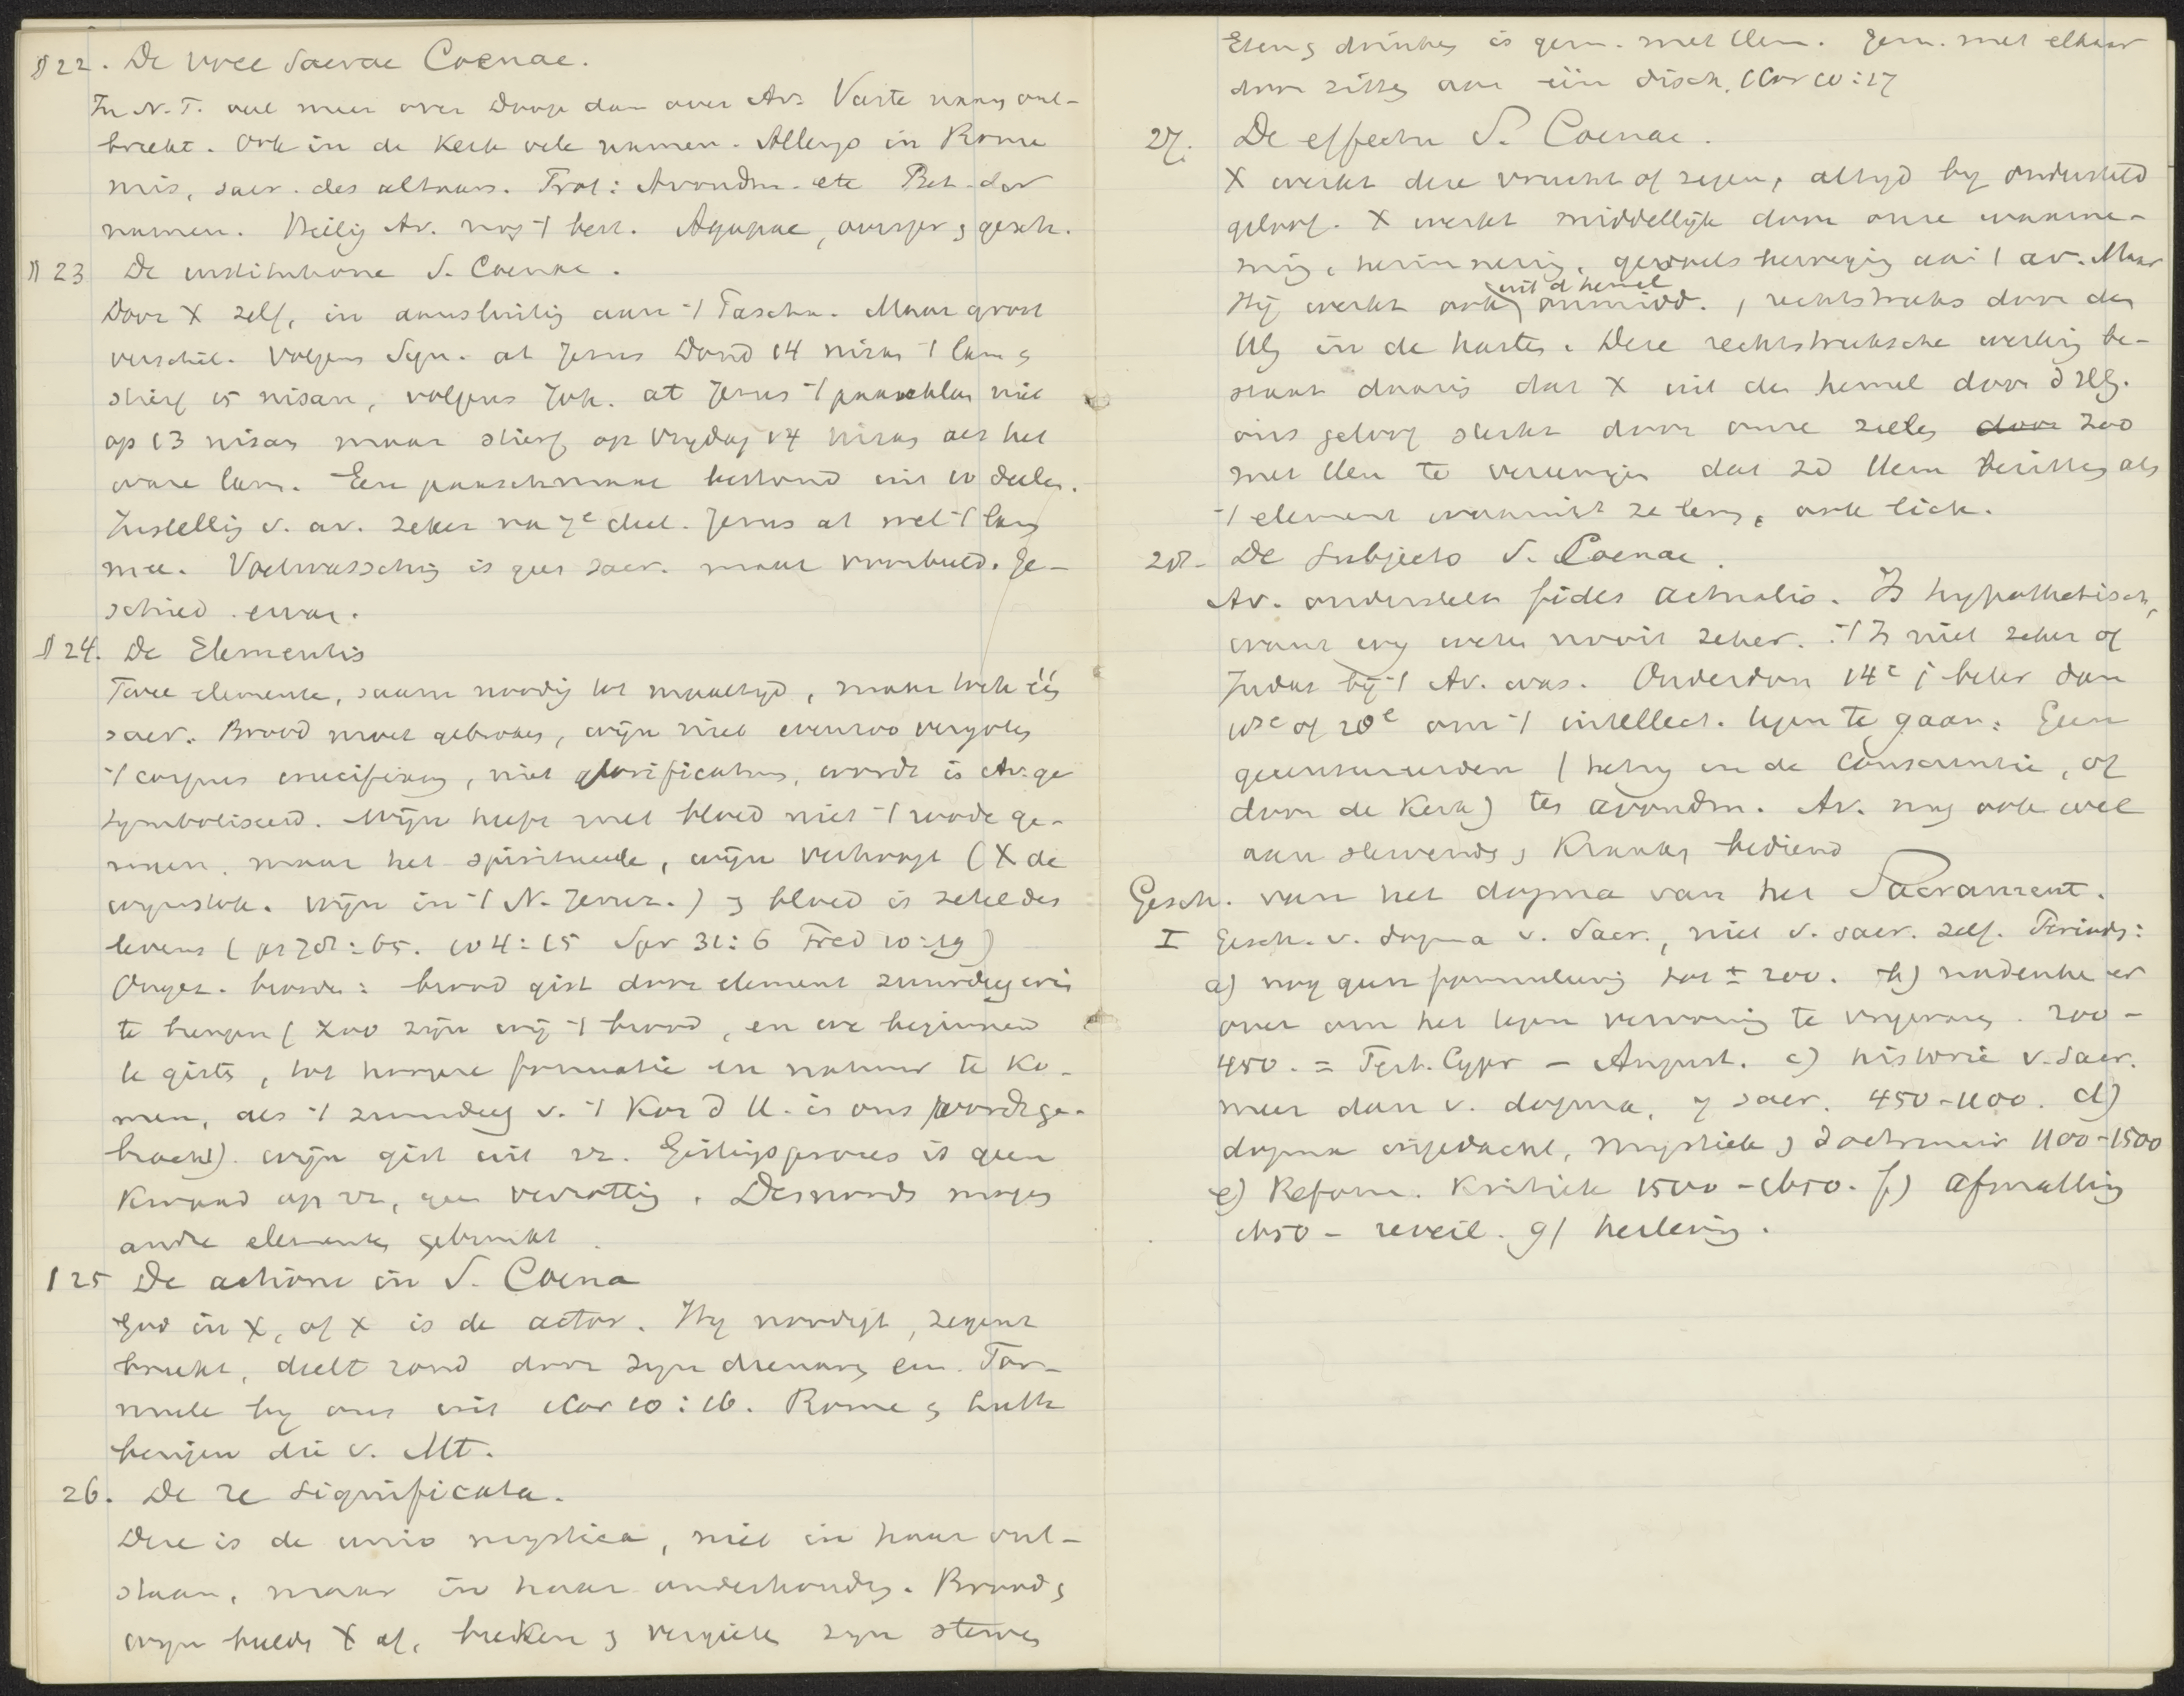 § 22. De voce Sacrae Coenae.
In N.T. veel meer over Doop dan over Av. Vaste naam ont-
breekt. Ook in de Kerk vele namen. Allengs in Rome
mis, sacr. des altaars. Prot: Avondm. etc Bet. der
namen. Heilig Av. nog 't best. Agapae, oorspr. & gesch.
§ 23 De institutione S. Coenae.
Door X zelf, in aansluiting aan 't Pascha. Maar groot
verschil. Volgens Syn. at Jesus Dond 14 nisan 't lam &
stierf 15 nisan, volgens Joh. at Jesus 't paaschlam niet
op 13 nisan maar stierf op Vrydag 14 nisan als het
ware lam. Een paaschmaal bestond uit 10 deelen.
Instellig v. av. zeker na 7e deel. Jesus at wel 't lam
mee. Voetwassching is geen sacr. maar voorbeeld. Ge-
schied. ervan.
§ 24. De Elementis
Twee elementen, saam noodig tot maaltyd, maar toch één
sacr. Brood moet gebroken, wijn niet evenzoo vergoten
't corpus crucifixum, niet glorificatum, wordt in Av. ge
symboliseerd. Wijn heeft met bloed niet 't roode ge-
meen, maar het spiritueele, wijn verhoogt (X de
wynstok. wijn in 't N. Jeruz.) & bloed is zetel des
levens (ps 78:65. 104:15 Spr 31:6 Pred 10:19)
Ongez. brood: brood gist door element zuurdeeg erin
te brengen (zoo zijn wij 't brood, en we beginnen
te gisten, tot hoogere formatie en natuur te ko-
men, als 't zuurdeeg v. 't Kon d H. in ons wordt ge-
bracht). wijn gist uit zz. Gistingsproces is geen
kwaad op zz, geen verrotting. Desnoods mogen
andre elementen gebruikt
§ 25 De actione in S. Coena
God in X, of X is de actor. Hy noodigt, zegent
breekt, deelt rond door zyn dienaren em. For-
mule by ons uit 1 Cor 10:16. Rome & Luth
bezigen die v. Mt.
26. De re significata.
Deze is de unio mystica, niet in haar ont-
staan, maar in haar onderhouding. Brood &
wyn beeldt X af, breken & vergieten zyn sterven
Eten & drinken is gem. met Hem. Gem. met elkaar
door zitten aan één disch. 1 Cor 10:17
27. De effectu S. Coenae.
X werkt deze vrucht of zegen, altyd by ondersteld
geloof. X werkt middellijk door onze waarne-
ming, herinnering, gevoels beweging aan 't av. Maar
Hij werkt ook uit d hemel onmidd., rechtstreeks door den
HG in de harten. Deze rechtstreeksche werking be-
staat daarin dat X uit den hemel door d HG.
ons geloof sterkt door onze zielen door zoo
met Hem te vereenigen dat ze Hem bezitten als
't element waaruit ze leven, ook lich.
28. De subjecto S. Coenae.
Av. onderstelt fides actualis. Is hypothetisch,
want wy weten nooit zeker. 't Is niet zeker of
Judas bij 't Av. was. Ouderdom 14e j beter dan
18e of 20e om 't intellect. tegen te gaan. Geen
gecensureerden (hetzy in de consciëntie, of
door de Kerk) ten avondm. Av. mag ook wel
aan stervenden & Kranken bediend
Gesch. van het dogma van het Sacrament.
I Gesch. v. dogma v. Sacr., niet v. sacr. zelf. Perioden:
a) nog geen formuleering tot ± 200. b) nadenken er
over om het tegen verwording te vrywaren. 200 -
450. = Tert. Cypr - August. c) historie v. sacr.
meer dan v. dogma, 7 sacr. 450-1100. d)
dogma ingedacht, mystiek & doctrinair 1100-1500
e) Reform. Kritiek 1500-1650. f) afmatting
1650 - reveil. g) herleving.